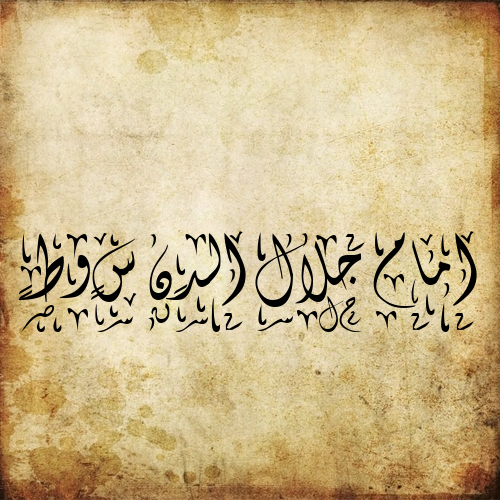 امام جلال الدن سوط